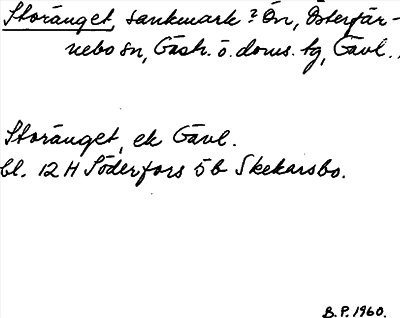 Storänget, sankmark? Ön, Österfär-
nebo sn, Gästr. ö. doms. tg, Gävl..
Storänget, ek Gävl.
bl. 12 H Söderfors 5b Skekarsbo.
B.P. 1960.